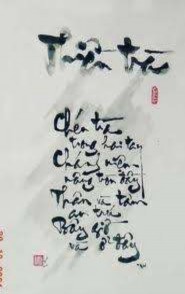 Thiền trà
Chén trà
trong hai tay
Chánh niệm
nâng trọn đầy
Thân và tâm
an trú
Bây giờ
và ở đây